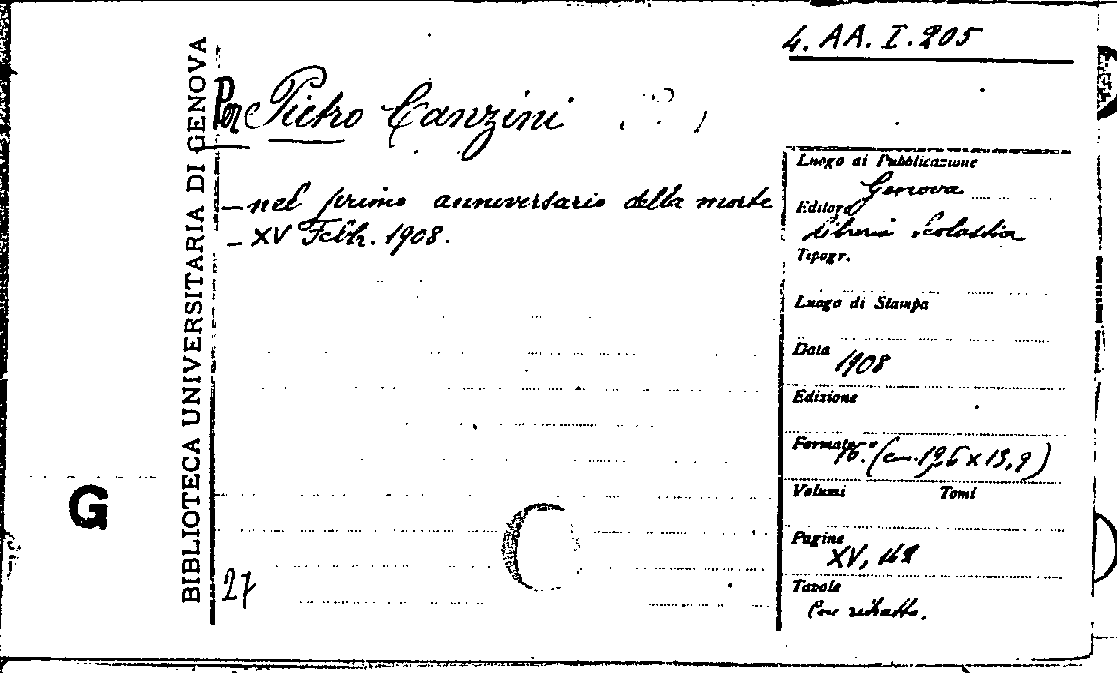 4. AA. I. 205
BIBLIOTECA UNIVERSITARIA DI GENOVA
Per Pietro Canzini
- nel primo anniversario della morte
- XV Febbr. 1908.
Luogo di Pubblicazione
Genova
Editore
Libreria Scolastica
Tipogr.
Luogo di Stampa
Data
1908
Edizione
Formato
16.° (cm. 19,6 x 13,9)
Volumi Tomi
Pagine
XV, 42
Tavole
Con ritratto.
G
27